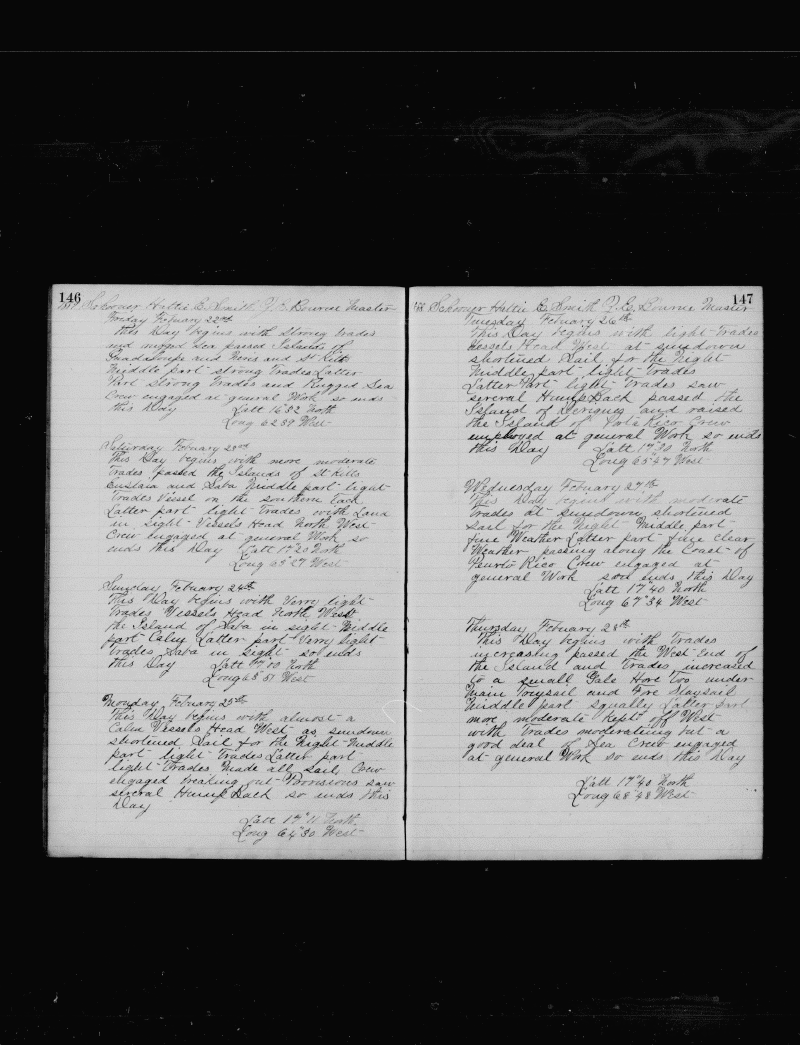 146
Schooner Hattie E Smith Bourne Master
Friday Febuary 22nd
this Day begins with Strong trades
and rugged Sea passed Islands of
Guadaloupe and Nevis and St Kitts
Middle part strong trades Latter
Part strong trades and Rugged Sea
Crew engaged at general Work so ends
this Day Latt 16°52 North
Long 62°39 West
Saturday Febuary 23rd
This Day begins with more moderate
trades passed the Islands of St Kitts
and Saba Middle part light
trades Vessel on the southern Tack
Latter part light trades with Land
in sight Vessels Head North West
Crew engaged at general Work so
ends this Day Latt 17°20 North
Long 63°27 West
Sunday Febuary 24th
This Day begins with Verry light
trades Vessels Head North West
the Island of Saba in sight Middle
part Calm Latter part Verry light
trades Saba in sight so ends
this Day Latt 17°00 North
Long 63°51 West
Monday Febuary 25th
This Day begins with almost a
Calm Vessels Head West as sundown
shortened Sail for the Night Middle
part light trades Latter part
light trades Made all sail Crew
engaged breaking out Provisions saw
several Hump Back so ends this
Day
Latt 17°11 North
Long 64°30 West
147
Schooner Hattie E Smith Bourne Master
Tuesday Febuary 26th
This Day begins with light trades
Vessels Head West at sundown
shortened Sail for the Night
Middle part light trades
Latter Part light trades saw
several Hump Back passed the
Island of and raised
the Island of Porta Rico Crew
employed at general Work so ends
this Day Latt 17°30 North
Long 65°27 West
Wednesday Febuary 27th
This Day begins with moderate
trades at sundown shortened
sail for the Night Middle part
fine Weather Latter part fine clear
Weather passing along the Coast of
Puerto Rico Crew engaged at
general Work soo ends this Day
Latt 17°40 North
Long 67°34 West
Thursday Febuary 28th
This Day begins with trades
increasing passed the West End of
the Island and trades increased
to a small Gale Hove Too under
Main Trysail and Fore Staysail
Middle part squally Latter part
more moderate Kept off West
with trades moderating but a
good deal of Sea Crew engaged
at general Work so ends this Day
Latt 17°40 North
Long 68°48 West